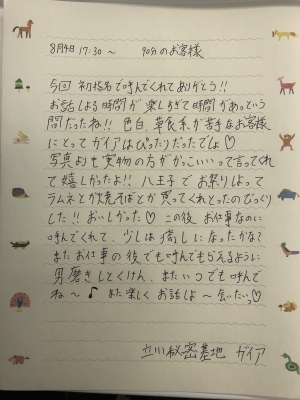 8月4日 17:30〜 90分のお客様
5回 初指名で呼んでくれてありがとう!!
お話しよる時間が楽しすぎて時間があっという
間だったね!! 色白 草食系が苦手なお客様
にとってガイアはぴったりだったでしょ♡
写真よりも実物の方がかっこいいって言ってくれ
て嬉しかったよ!! 八王子でお祭りしよって
ラムネとか焼そばとか買ってくれとったのびっくり
した!! おいしかった♡ この後お仕事なのに
呼んでくれて、少しは癒しになったかな?
またお仕事の後でも呼んでもらえるように
男磨きしとくけん、またいつでも呼んで
ね〜♪ また楽しくお話しよ〜 会いたい♡
立川秘密基地 ガイア